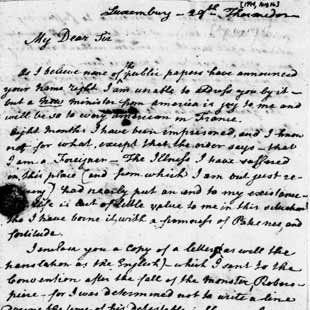 Luxemburg - 29th Thermidor
My Dear Sir
As I believe none of the public papers have announced
your name right I am unable to address you by it -
but a new minister from America is joy to me and
will be so to every American in France.
Eight Months I have been imprisoned, and I know
not for what, except that the order says - that
I am a Foreigner - The Illness I have suffered
in this place (and from which I am but just re-
covering) had nearly put an end to my existence -
life is but of little value to me in this situation
tho I have borne it with a firmness of Patience and
fortitude.
I enclose you a Copy of a letter (as well the
translation as the English) - which I sent to the
Convention after the fall of the monster Robes-
pierre - for I was determined not to write a line